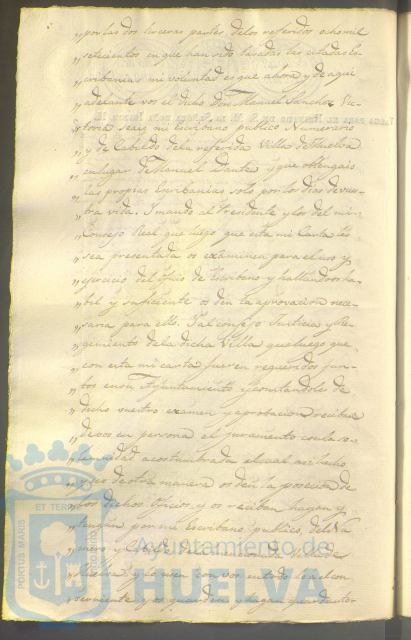 „ por las dos terceras partes, de los referidos ocho mil
„ setecientos en que han sido tasadas las citadas Es-
„ cribanias mi voluntad es que ahora y de aqui
„ adelante vos el dicho Don Manuel Sanchez Vic-
„ toria seais mi Escribano publico Numerario
„ y de Cabildo de la referida Villa de Huelva
„ en lugar de Manuel y que obtengais
„ las propias Escribanias solo por los dias de vues-
„ tra vida. Y mando al Presidente y los del mi
„ Consejo Real que luego que esta mi Carta les
„ sea presentada os examinen para el uso y
„ egercicio del oficio de Escribano y hallandoos ha-
„ bil y suficiente os den la aprovacion nece-
„ saria para ello. Y al consejo Justicia y Re-
„ gimiento de la dicha Villa que luego que
„ con esta mi carta fueren requeridos jun-
„ tos en su Ayuntamiento y constandoles de
„ dicho vuestro examen y aprobacion reciban
„ de vos en persona el juramento con la so-
„ lemnidad acostumbrada el cual asi hecho
„ y no de otra manera os den la posecion de
„ los dichos oficios, y os reciban hagan y
„ tengan por mi escribano publico, del Nu
„ mero y Cabildo de la Villa de
„ Huelva y lo usen con vos en todo lo a el con
„ cerniente y os guarden y hagan guardar to-
PORTUS MARIS
ET TERRAE
Ayuntamiento de
HUELVA